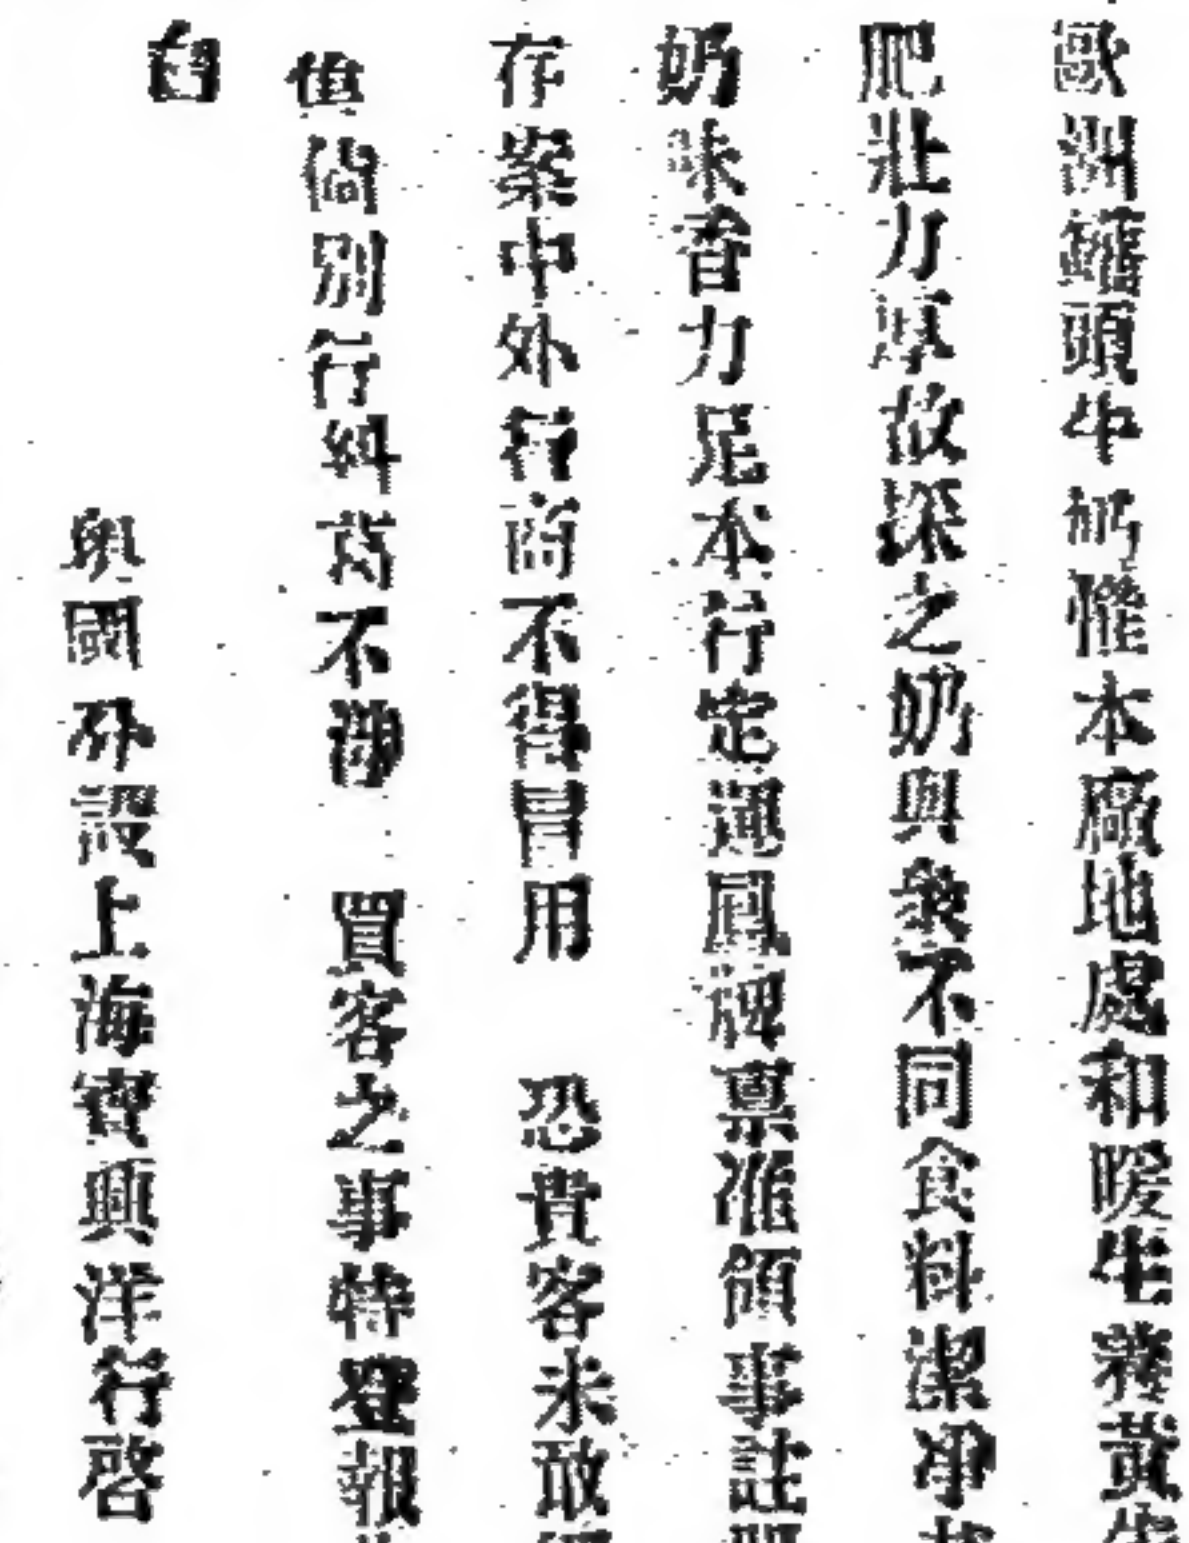 歐洲鑵頭牛奶惟本廠地處和暖牛務黃牛
肥壯力厚故採之奶與衆不同食料潔净故
奶味香力足本行定運鳳牌稟准領事註冊
存案中外行商不得冒用 恐貴客未敢
値倘別行糾葛不涉 買客之事特登報
白
奧國外設上海寶興洋行啓